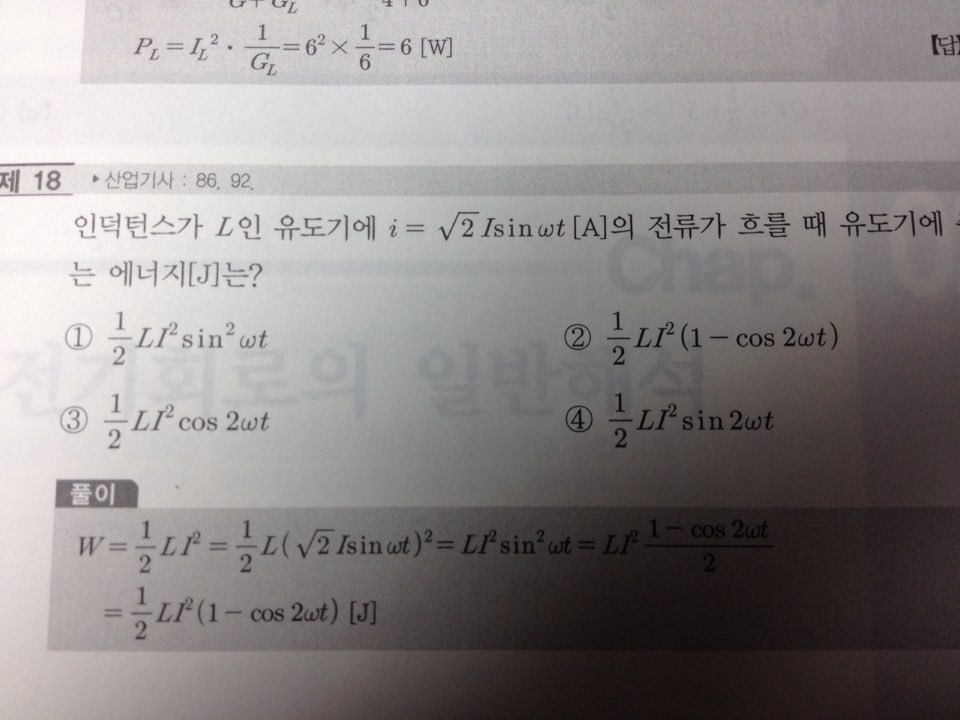 P_L = I_L² · 1/G_L = 6² × 1/6 = 6 [W]
【답】
제 18 ▸산업기사 : 86. 92.
인덕턴스가 L인 유도기에 i = √2 Isin ωt [A]의 전류가 흐를 때 유도기에
는 에너지[J]는?
① 1/2 LI² sin² ωt ② 1/2 LI² (1 − cos 2ωt)
③ 1/2 LI² cos 2ωt ④ 1/2 LI² sin 2ωt
풀이
W = 1/2 LI² = 1/2 L(√2 Isin ωt)² = LI² sin² ωt = LI² (1 − cos 2ωt)/2
= 1/2 LI² (1 − cos 2ωt) [J]
Chap.
전기회로의 일반해석